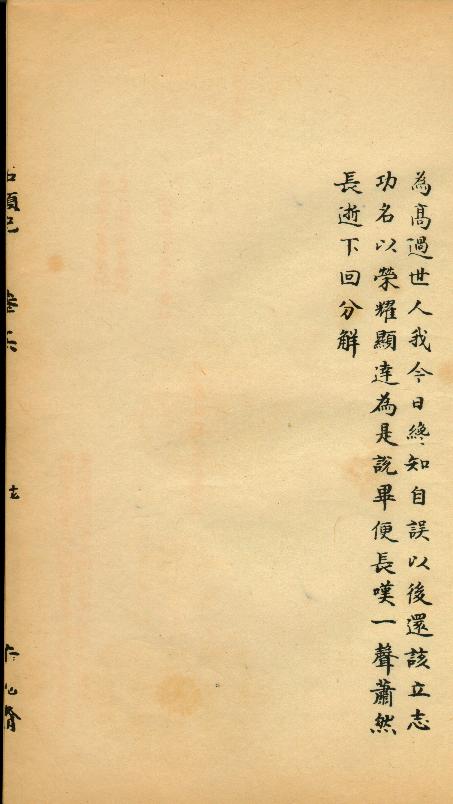 為髙過世人我今日終知自誤以後還該立志
功名以榮耀顯達為是說畢便長嘆一聲蕭然
長逝下回分解